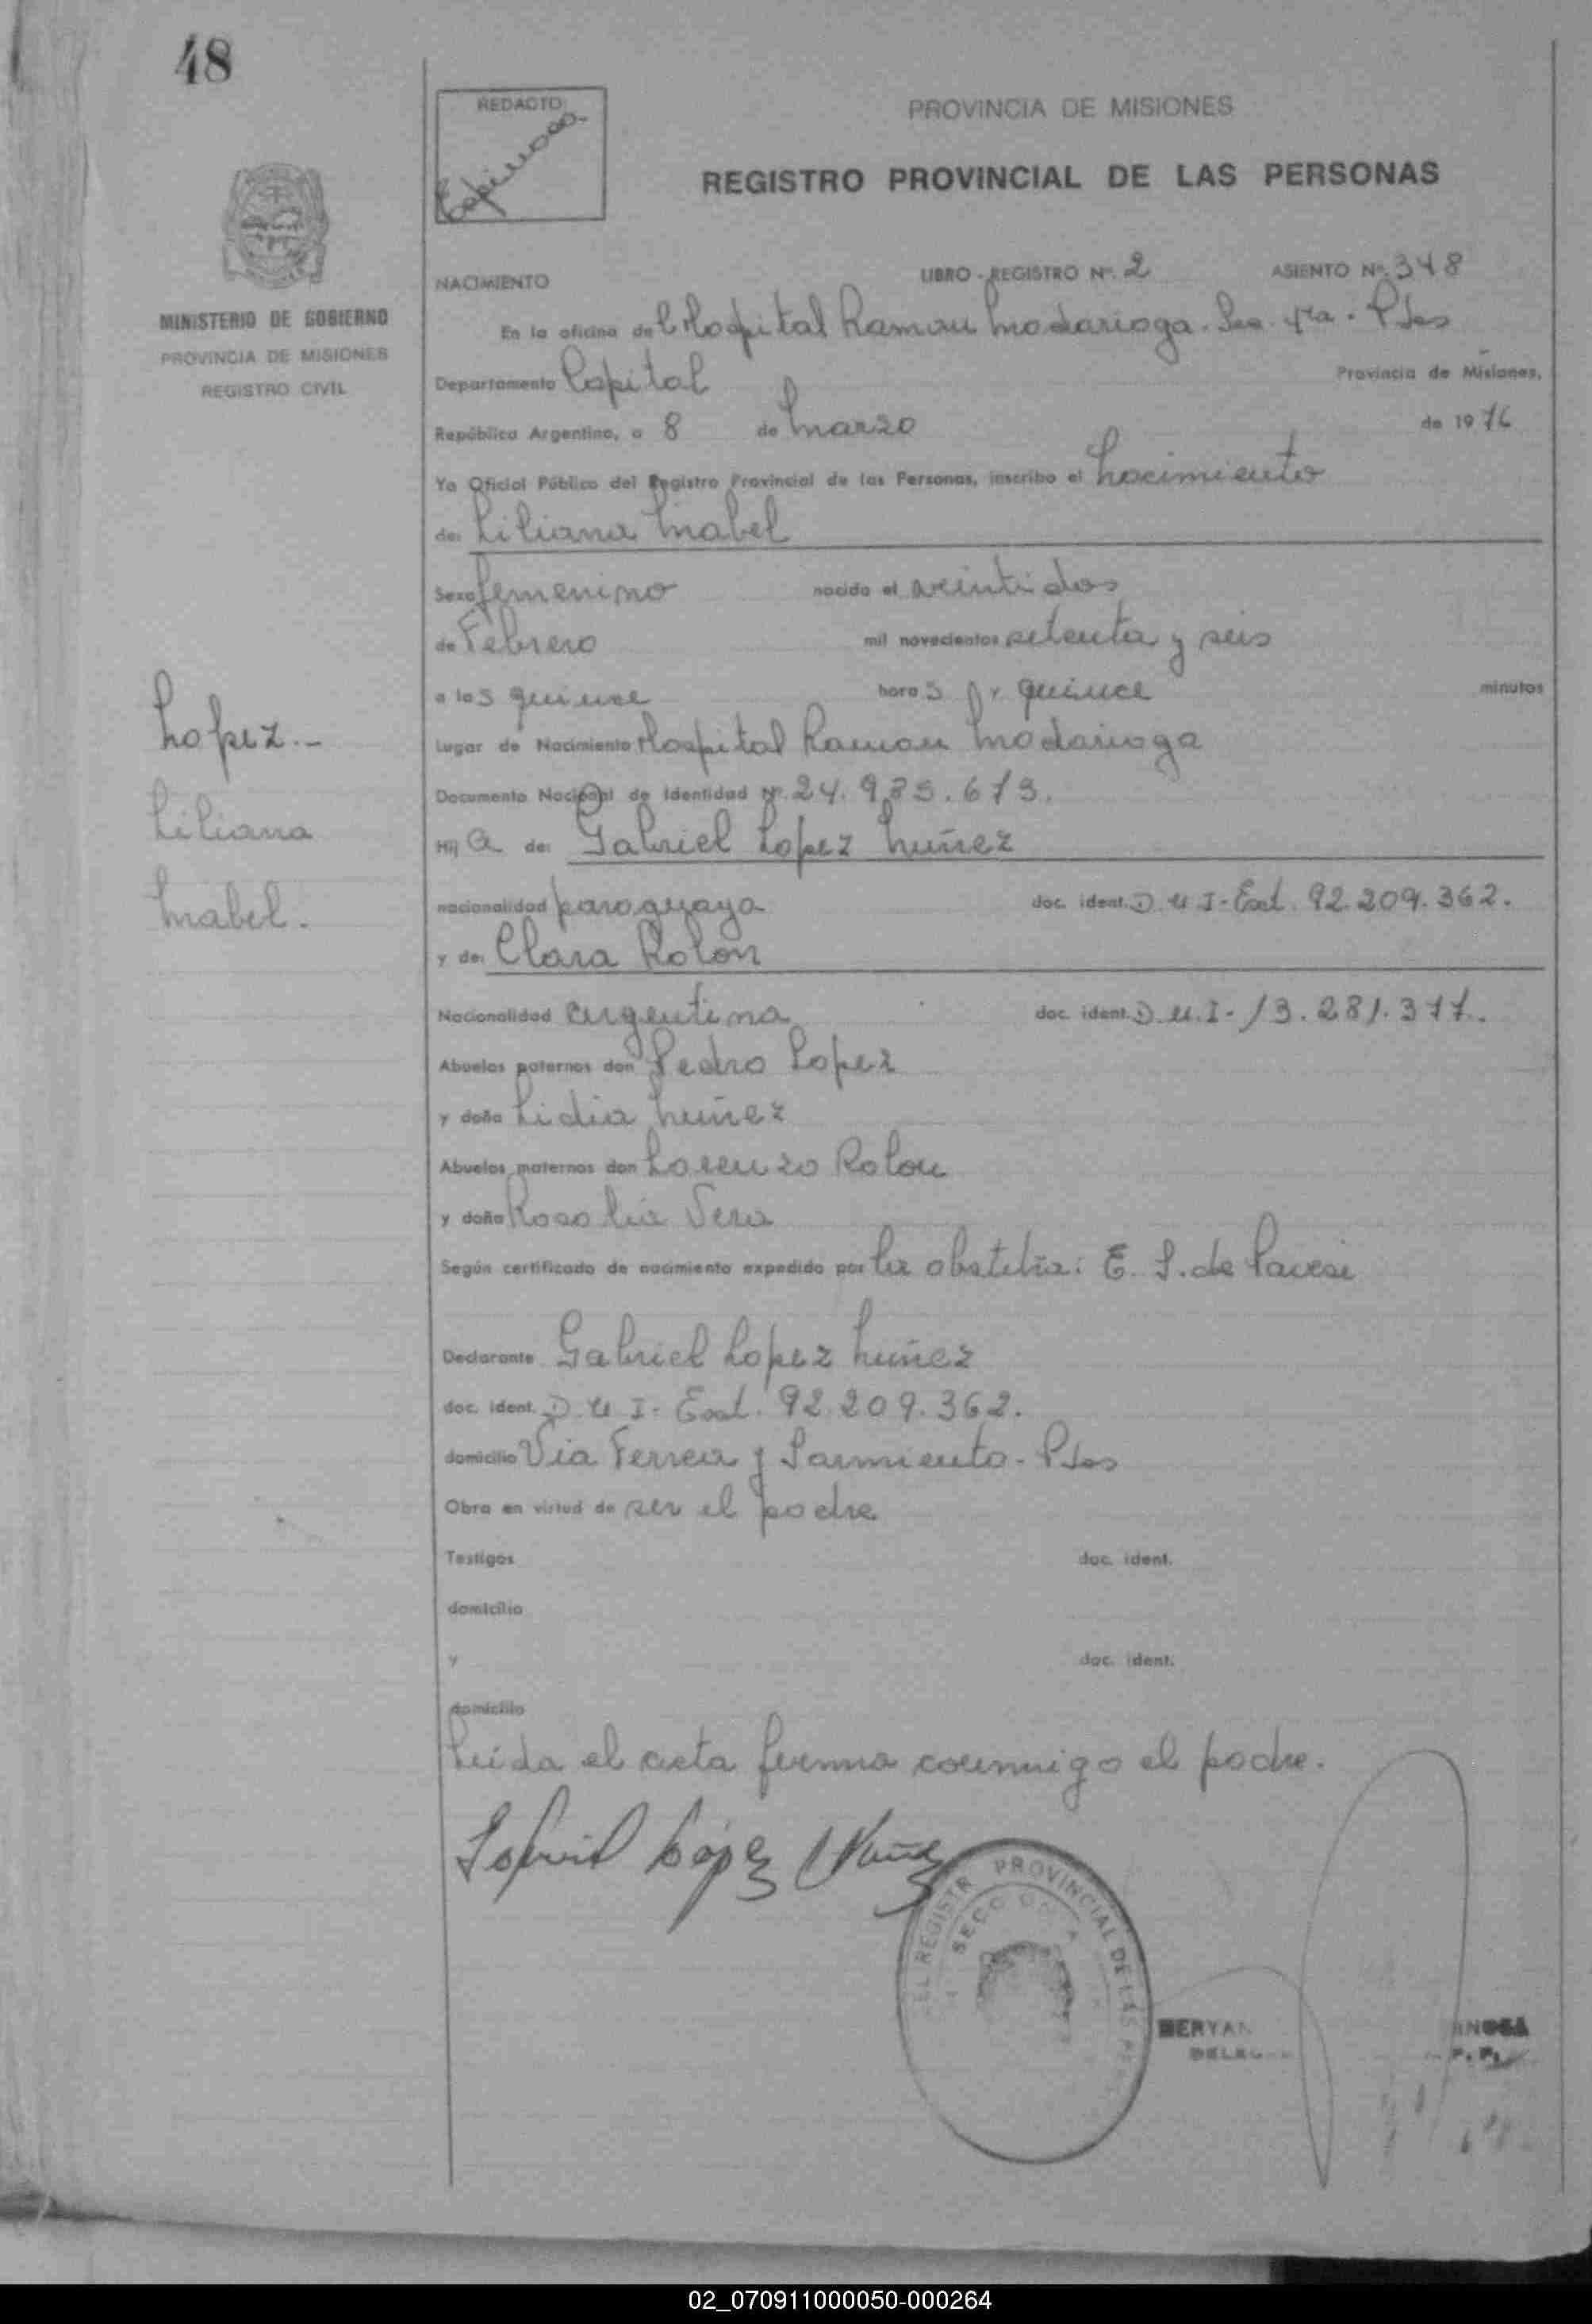 48
REDACTO
Espinosa.
PROVINCIA DE MISIONES
REGISTRO PROVINCIAL DE LAS PERSONAS
MINISTERIO DE GOBIERNO
PROVINCIA DE MISIONES
REGISTRO CIVIL
NACIMIENTO
LIBRO - REGISTRO Nº. 2
ASIENTO Nº. 348
En la oficina del Hospital Ramon Madariaga. Sec. 4ta. Pdas
Departamento Capital Provincia de Misiones,
República Argentina, a 8 de Marzo de 1976
Yo Oficial Público del Registro Provincial de las Personas, inscribo el Nacimiento
de: Liliana Mabel
Sexo femenino nacido el veintidos
de Febrero mil novecientos setenta y seis
a las quince horas y quince minutos
Lugar de Nacimiento Hospital Ramon Madariaga
Documento Nacional de Identidad Nº. 24.985.673.
Hij a de: Gabriel Lopez Nuñez
nacionalidad paraguaya doc. ident. D.U.I-Ext. 92.209.362.
y de: Clara Rolon
Nacionalidad argentina doc. ident. D.U.I- 13.281.377.
Abuelos paternos don Pedro Lopez
y doña Lidia Nuñez
Abuelos maternos don Lorenzo Rolon
y doña Rosalia Vera
Según certificado de nacimiento expedido por la E. S. de Pavesi
Declarante Gabriel Lopez Nuñez
doc. ident. D.U.I- Ext. 92.209.362.
domicilio Via Ferrea y Sarmiento - Pdas
Obra en virtud de ser el padre
Testigos doc. ident.
domicilio
y doc. ident.
domicilio
Leida el acta firma conmigo el padre.
Lopez.-
Liliana
Mabel.
Gabriel López Nuñez
EL REGISTR PROVINCIAL DE LAS PE
SECC
02_070911000050-000264